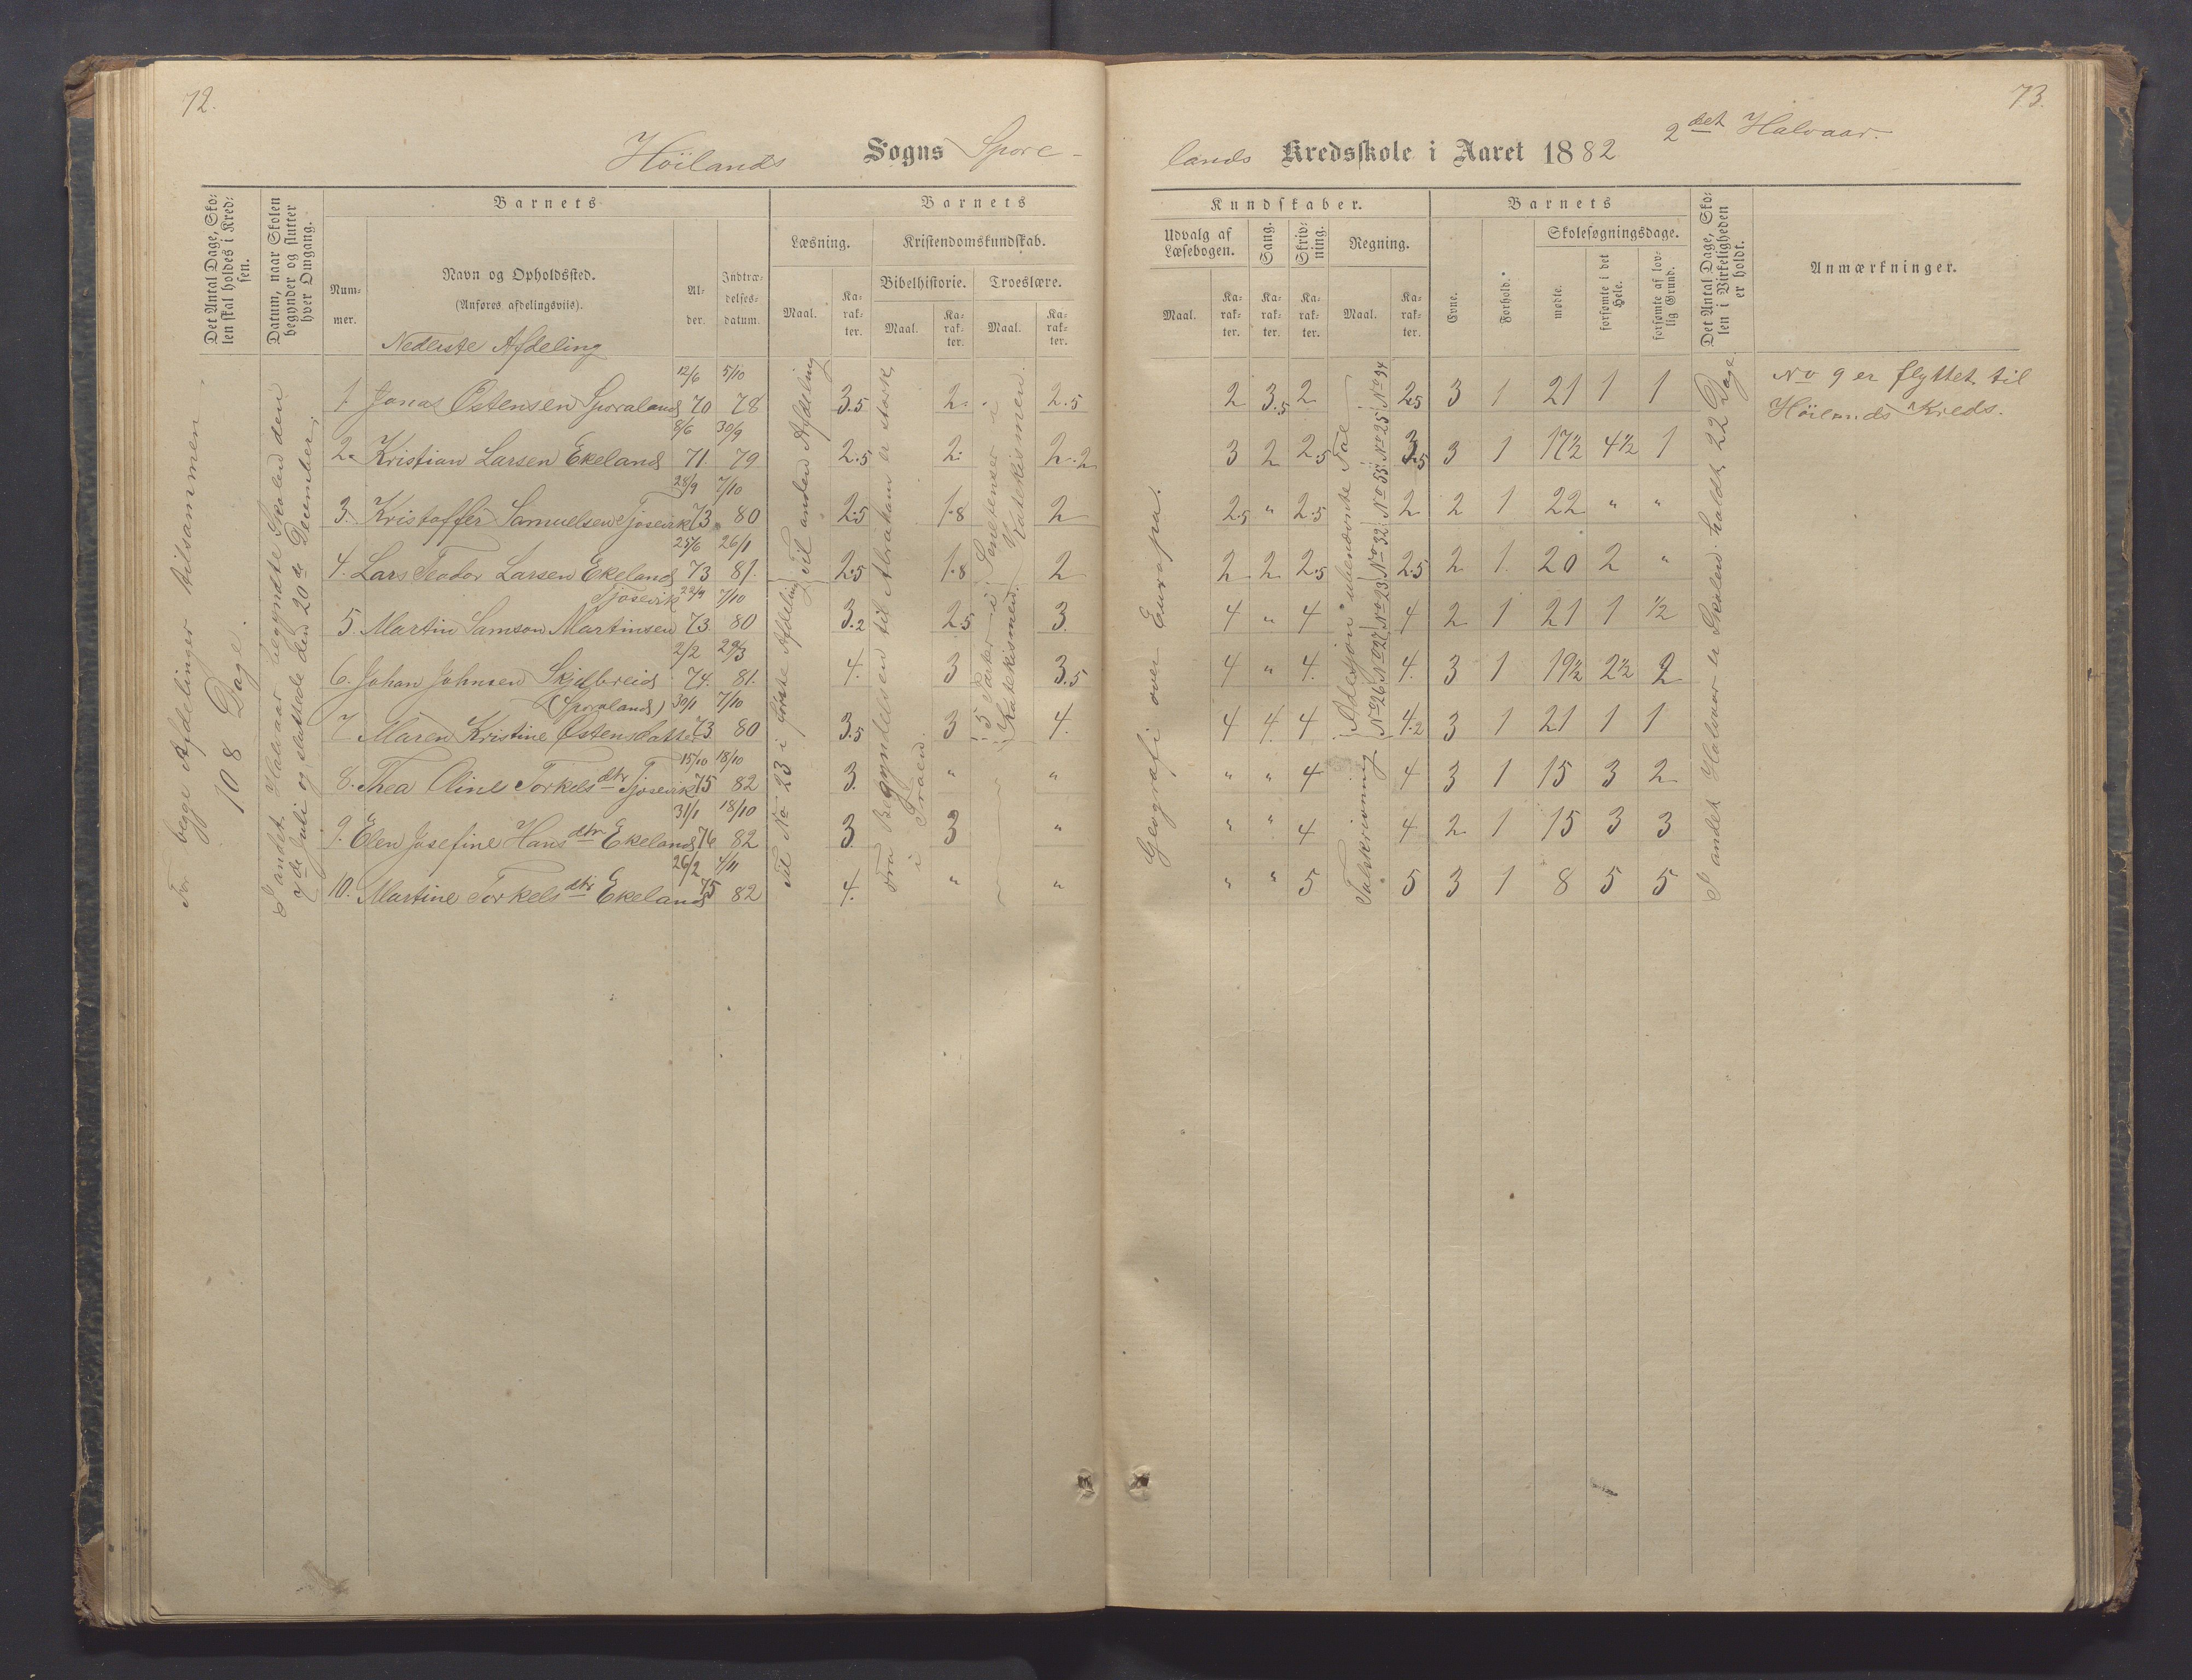 72.
Höilands Sogns Spore-
Det Antal Dage, Sko-
len skal holdes i Kred-
sen.
Datum, naar Skolen
begynder og slutter
hver Omgang.
Barnets
Num-
mer.
Navn og Opholdssted.
(Anføres afdelingsviis).
Al-
der.
Indtræ-
delses-
datum.
Barnets
Læsning.
Kristendomskundskab.
Bibelhistorie.
Troeslære.
Maal.
Ka-
rak-
ter.
Maal.
Ka-
rak-
ter.
Maal.
Ka-
rak-
ter.
Nederste Afdeling
For begge Afdelinger tilsammen
108 Dage.
I andet Halvaar begyndte Skolen den
7de Juli og sluttede den 20de December.
Til No 23 i første Afdeling til anden Afdeling
Fra Begyndelsen til Abraham er stærk
i Troen.
5 Parker i Sentenser i
Katekismen. Katekismen.
12/6 5/10
1 Jonas Østensen Sporaland 70 78 3.5 2. 2.5
8/6 30/9
2. Kristian Larsen Ekeland 71. 79 2.5 2. 2.2
28/9 7/10
3. Kristoffer Samuelsen Tjosevik 73 80 2.5 1.8 2
25/6 26/1
4. Lars Teodor Larsen Ekeland 73 81. 2.5 1.8 2
Tjosevik 22/4 7/10
5. Martin Samson Martinsen 73. 80 3.2 2.5 3.
2/2 29/3
6. Johan Johnsen Skjelbreid 74. 81. 4. 3 3.5
(Sporaland) 30/1 7/10
7. Maren Kristine Østensdatter 73. 80 3.5 3 4.
15/10 18/10
8. Thea Oline Torkelsdtr Tjosevik 75 82 3. " "
31/1 18/10
9. Elen Josefine Hansdtr Ekeland 76 82 3. 3 "
26/2 4/11
10. Martine Torkelsdtr Ekeland 75 82 4. " "
73.
lands Kredsskole i Aaret 1882 2det Halvaar.
Kundskaber.
Udvalg af
Læsebogen.
Sang.
Skriv-
ning.
Regning.
Maal.
Ka-
rak-
ter.
Ka-
rak-
ter.
Ka-
rak-
ter.
Maal.
Ka-
rak-
ter.
Barnets
Evne.
Forhold.
Skolesøgningsdage.
mødte.
forsømte i det
Hele.
forsømte af lov-
lig Grund.
Det Antal Dage, Sko-
len i Virkeligheden
er holdt.
Anmærkninger.
Geografi over Europa.
Talskrivning. Adesjon ubenævnte Tal
No 26 No 27 No 23 No 32 No 55 No 25 No 94
I andet Halvaar er Skolen holdt 22 Dage.
2 3.5 2 2.5 3 1 21 1 1
3 2 2.5 3.5 3 1 17½ 4½ 1
2.5 " 2.5 2 2 1 22 " "
2 2 2.5 2.5 2 1. 20 2 "
4 " 4 4 2 1 21 1 ½
4 " 4. 4. 3 1 19½ 2½ 2
4 4. 4 4.2 3 1 21 1 1
" " 4 4 3 1 15 3 2
" " 4 4 2 1 15 3 3
" " 5 5 3 1 8 5 5
No 9 er flyttet til
Höilands Kreds.